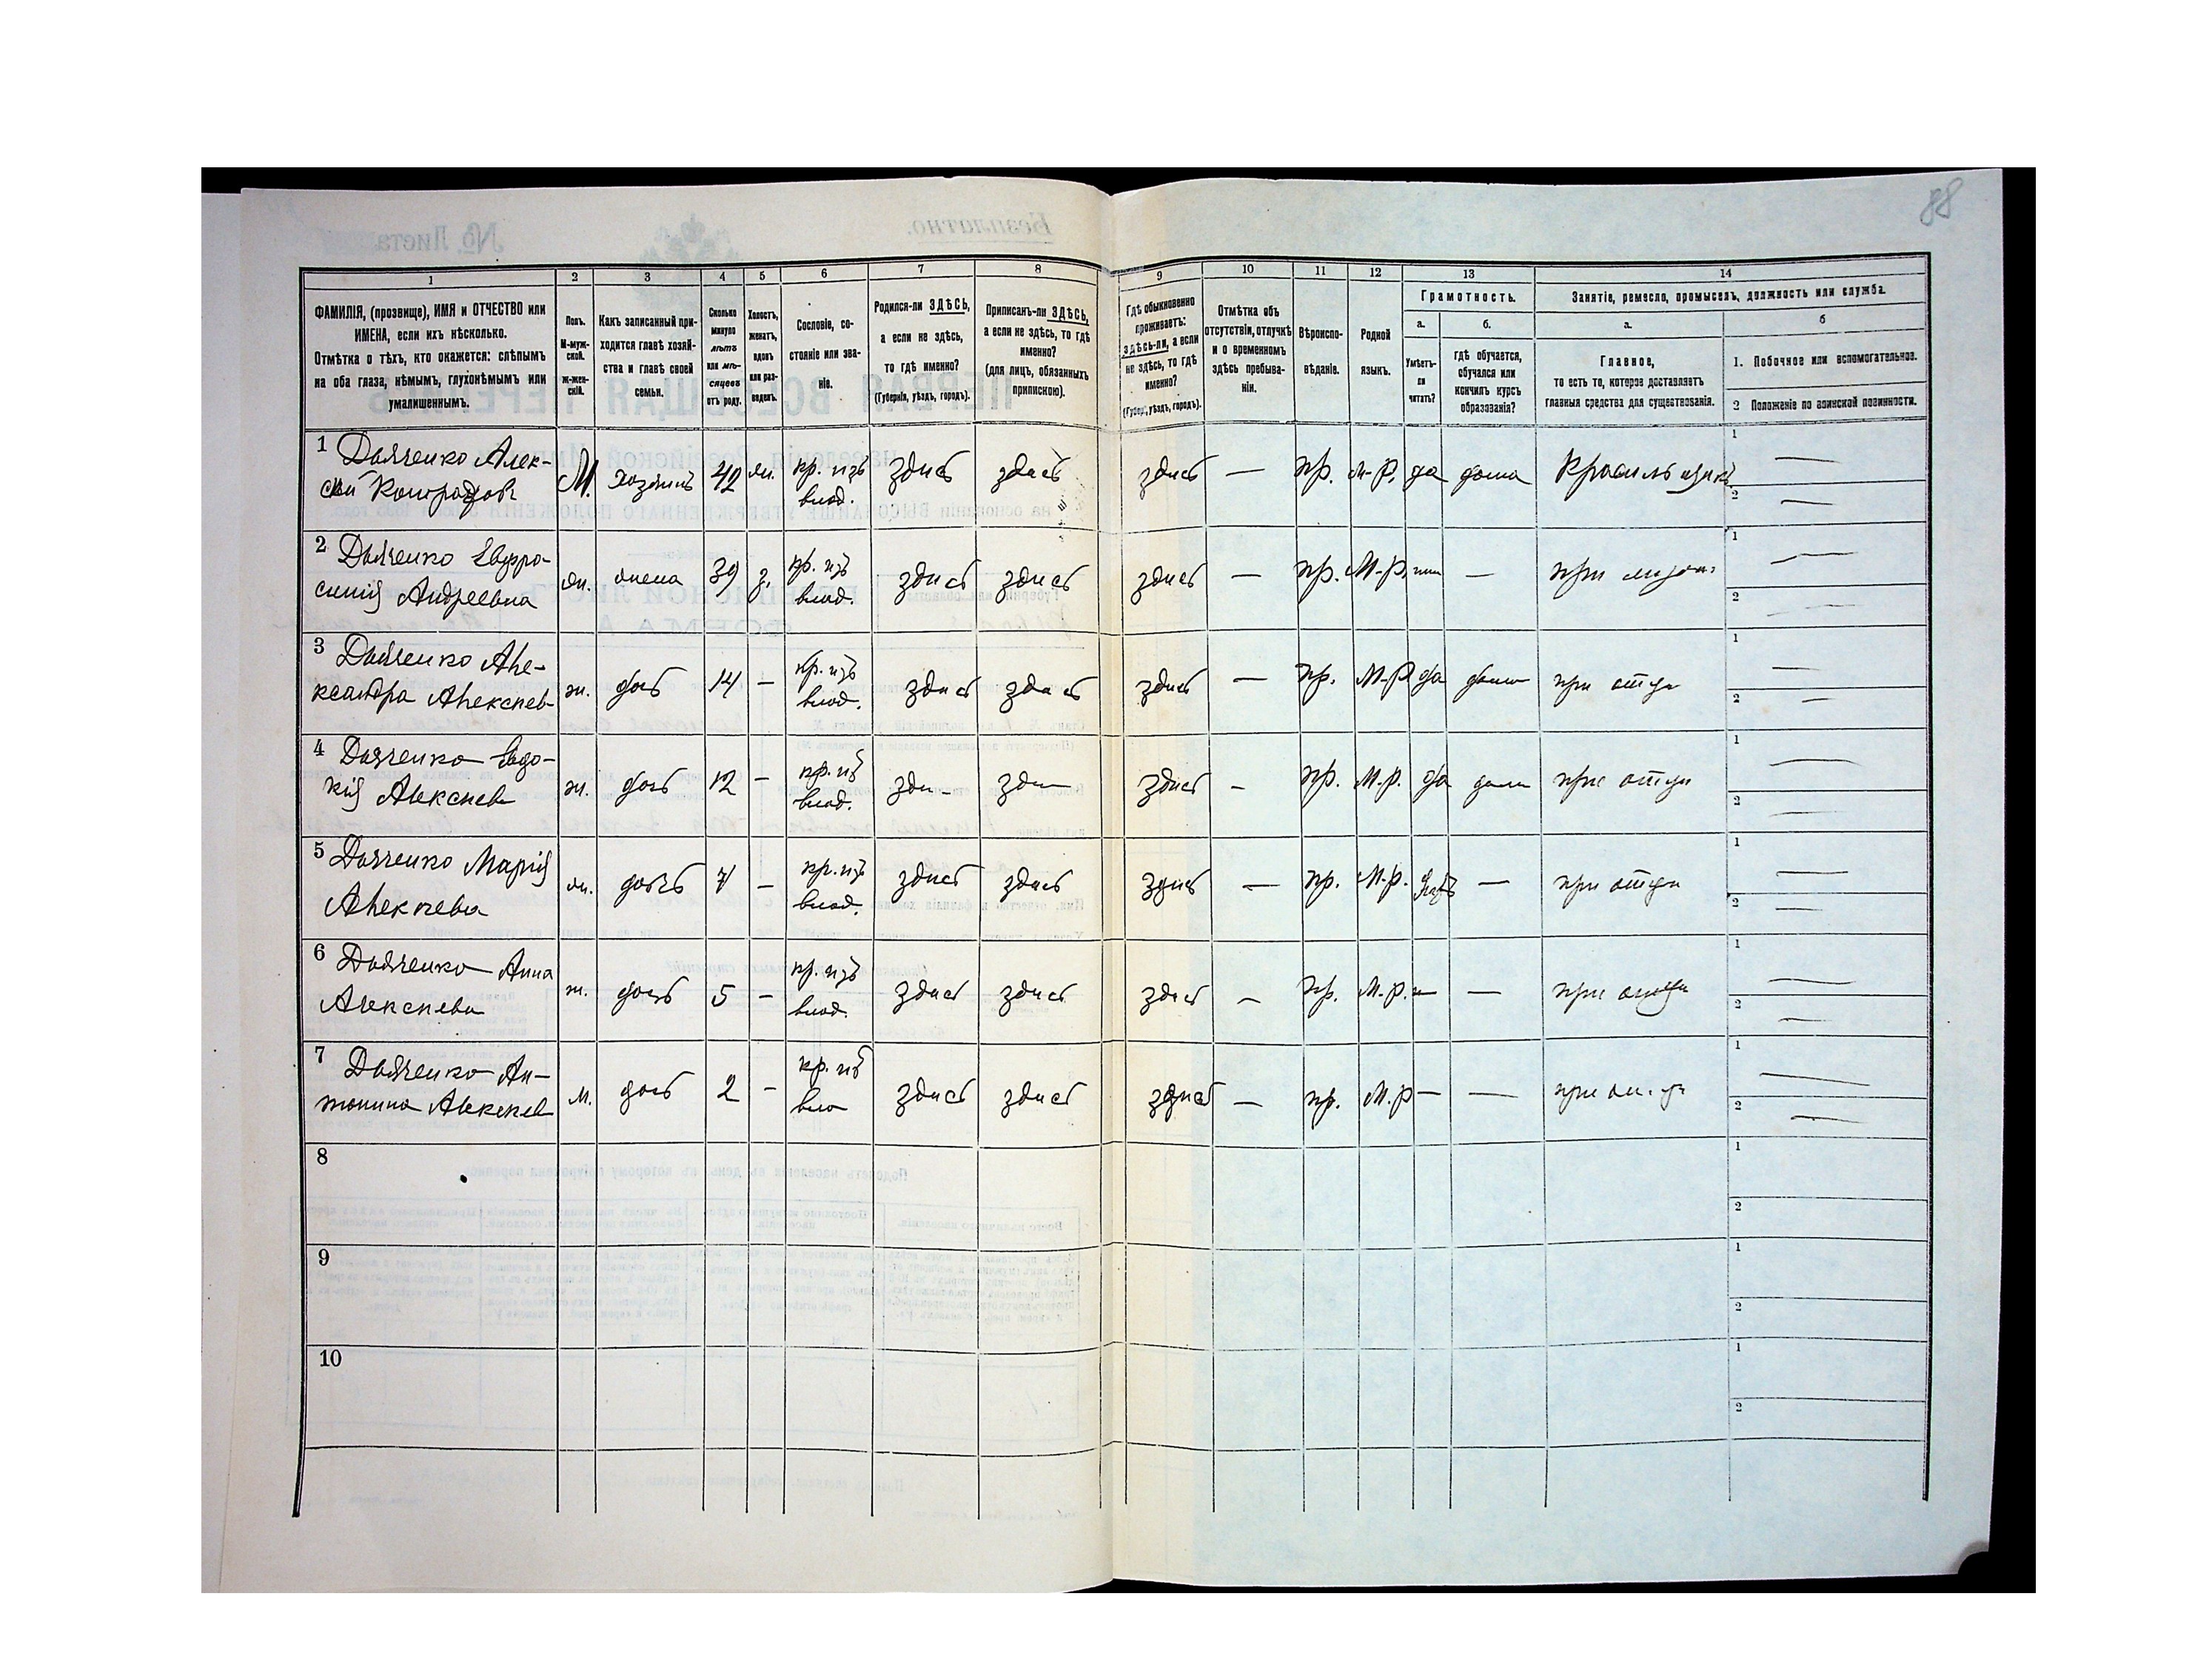 88
1 2 3 4 5 6 7 8 9 10 11 12 13 14
ФАМИЛІЯ, (прозвище), ИМЯ и ОТЧЕСТВО или
ИМЕНА, если ихъ нѣсколько.
Отмѣтка о тѣхъ, кто окажется: слѣпымъ
на оба глаза, нѣмымъ, глухонѣмымъ или
умалишеннымъ.
Полъ.
М-муж-
ской.
ж-жен-
скій.
Какъ записанный при-
ходится главѣ хозяй-
ства и главѣ своей
семьи.
Сколько
минуло
лѣтъ
или мѣ-
сяцевъ
отъ роду.
Холостъ,
женатъ,
вдовъ
или раз-
веденъ.
Сословіе, со-
стояніе или зва-
ніе.
Родился-ли ЗДѢСЬ,
а если не здѣсь,
то гдѣ именно?
(Губернія, уѣздъ, городъ).
Приписанъ-ли ЗДѢСЬ,
а если не здѣсь, то гдѣ
именно?
(для лицъ, обязанныхъ
припискою).
Гдѣ обыкновенно
проживаетъ:
здѣсь-ли, а если
не здѣсь, то гдѣ
именно?
(Губер., уѣздъ, городъ).
Отмѣтка объ
отсутствіи, отлучкѣ
и о временномъ
здѣсь пребыва-
ніи.
Вѣроиспо-
вѣданіе.
Родной
языкъ.
Грамотность.
а. б.
Умѣетъ-
ли
читать?
гдѣ обучается,
обучался или
кончилъ курсъ
образованія?
Занятіе, ремесло, промыселъ, должность или служба.
а. б
Главное,
то есть то, которое доставляетъ
главныя средства для существованія.
1. Побочное или вспомогательное.
2 Положеніе по воинской повинности.
1 Дьяченко Алек-
сѣй М. хозяинъ 42 жн. кр. изъ здѣсь здѣсь здѣсь — пр. М-Р. да дома Красильщикъ 1 —
влад. 2 —
2 Дьяченко Евфро-
синія Андреевна жн. жена 39 з. кр. изъ здѣсь здѣсь здѣсь — пр. М-Р. — при 1 —
влад. 2 —
3 Дьяченко Але-
ксандра Алексѣев ж. дочь 14 — кр. изъ здѣсь здѣсь здѣсь — пр. М-Р да дома при отцѣ 1 —
влад. 2 —
4 Дьяченко Евдо-
кія Алексѣев ж. дочь 12 — кр. изъ зд— зд— здѣсь — пр. М.р. да дома при отцѣ 1 —
влад. 2
5 Дьяченко Марія
Алексѣева жн. дочь 7 — кр. изъ здѣсь здѣсь здѣсь — пр. М.р. — при отцѣ 1 —
влад. 2 —
6 Дьяченко Анна
Алексѣева ж. дочь 5 — кр. изъ здѣсь здѣсь здѣсь — пр. М.р. — — при отцѣ 1 —
влад. 2 —
7 Дьяченко Ан-
тонина Алексѣев м. дочь 2 — кр. изъ здѣсь здѣсь здѣсь — пр. М.р — — при отцѣ 1 —
вла 2 —
8 1
2
9 1
2
10 1
2